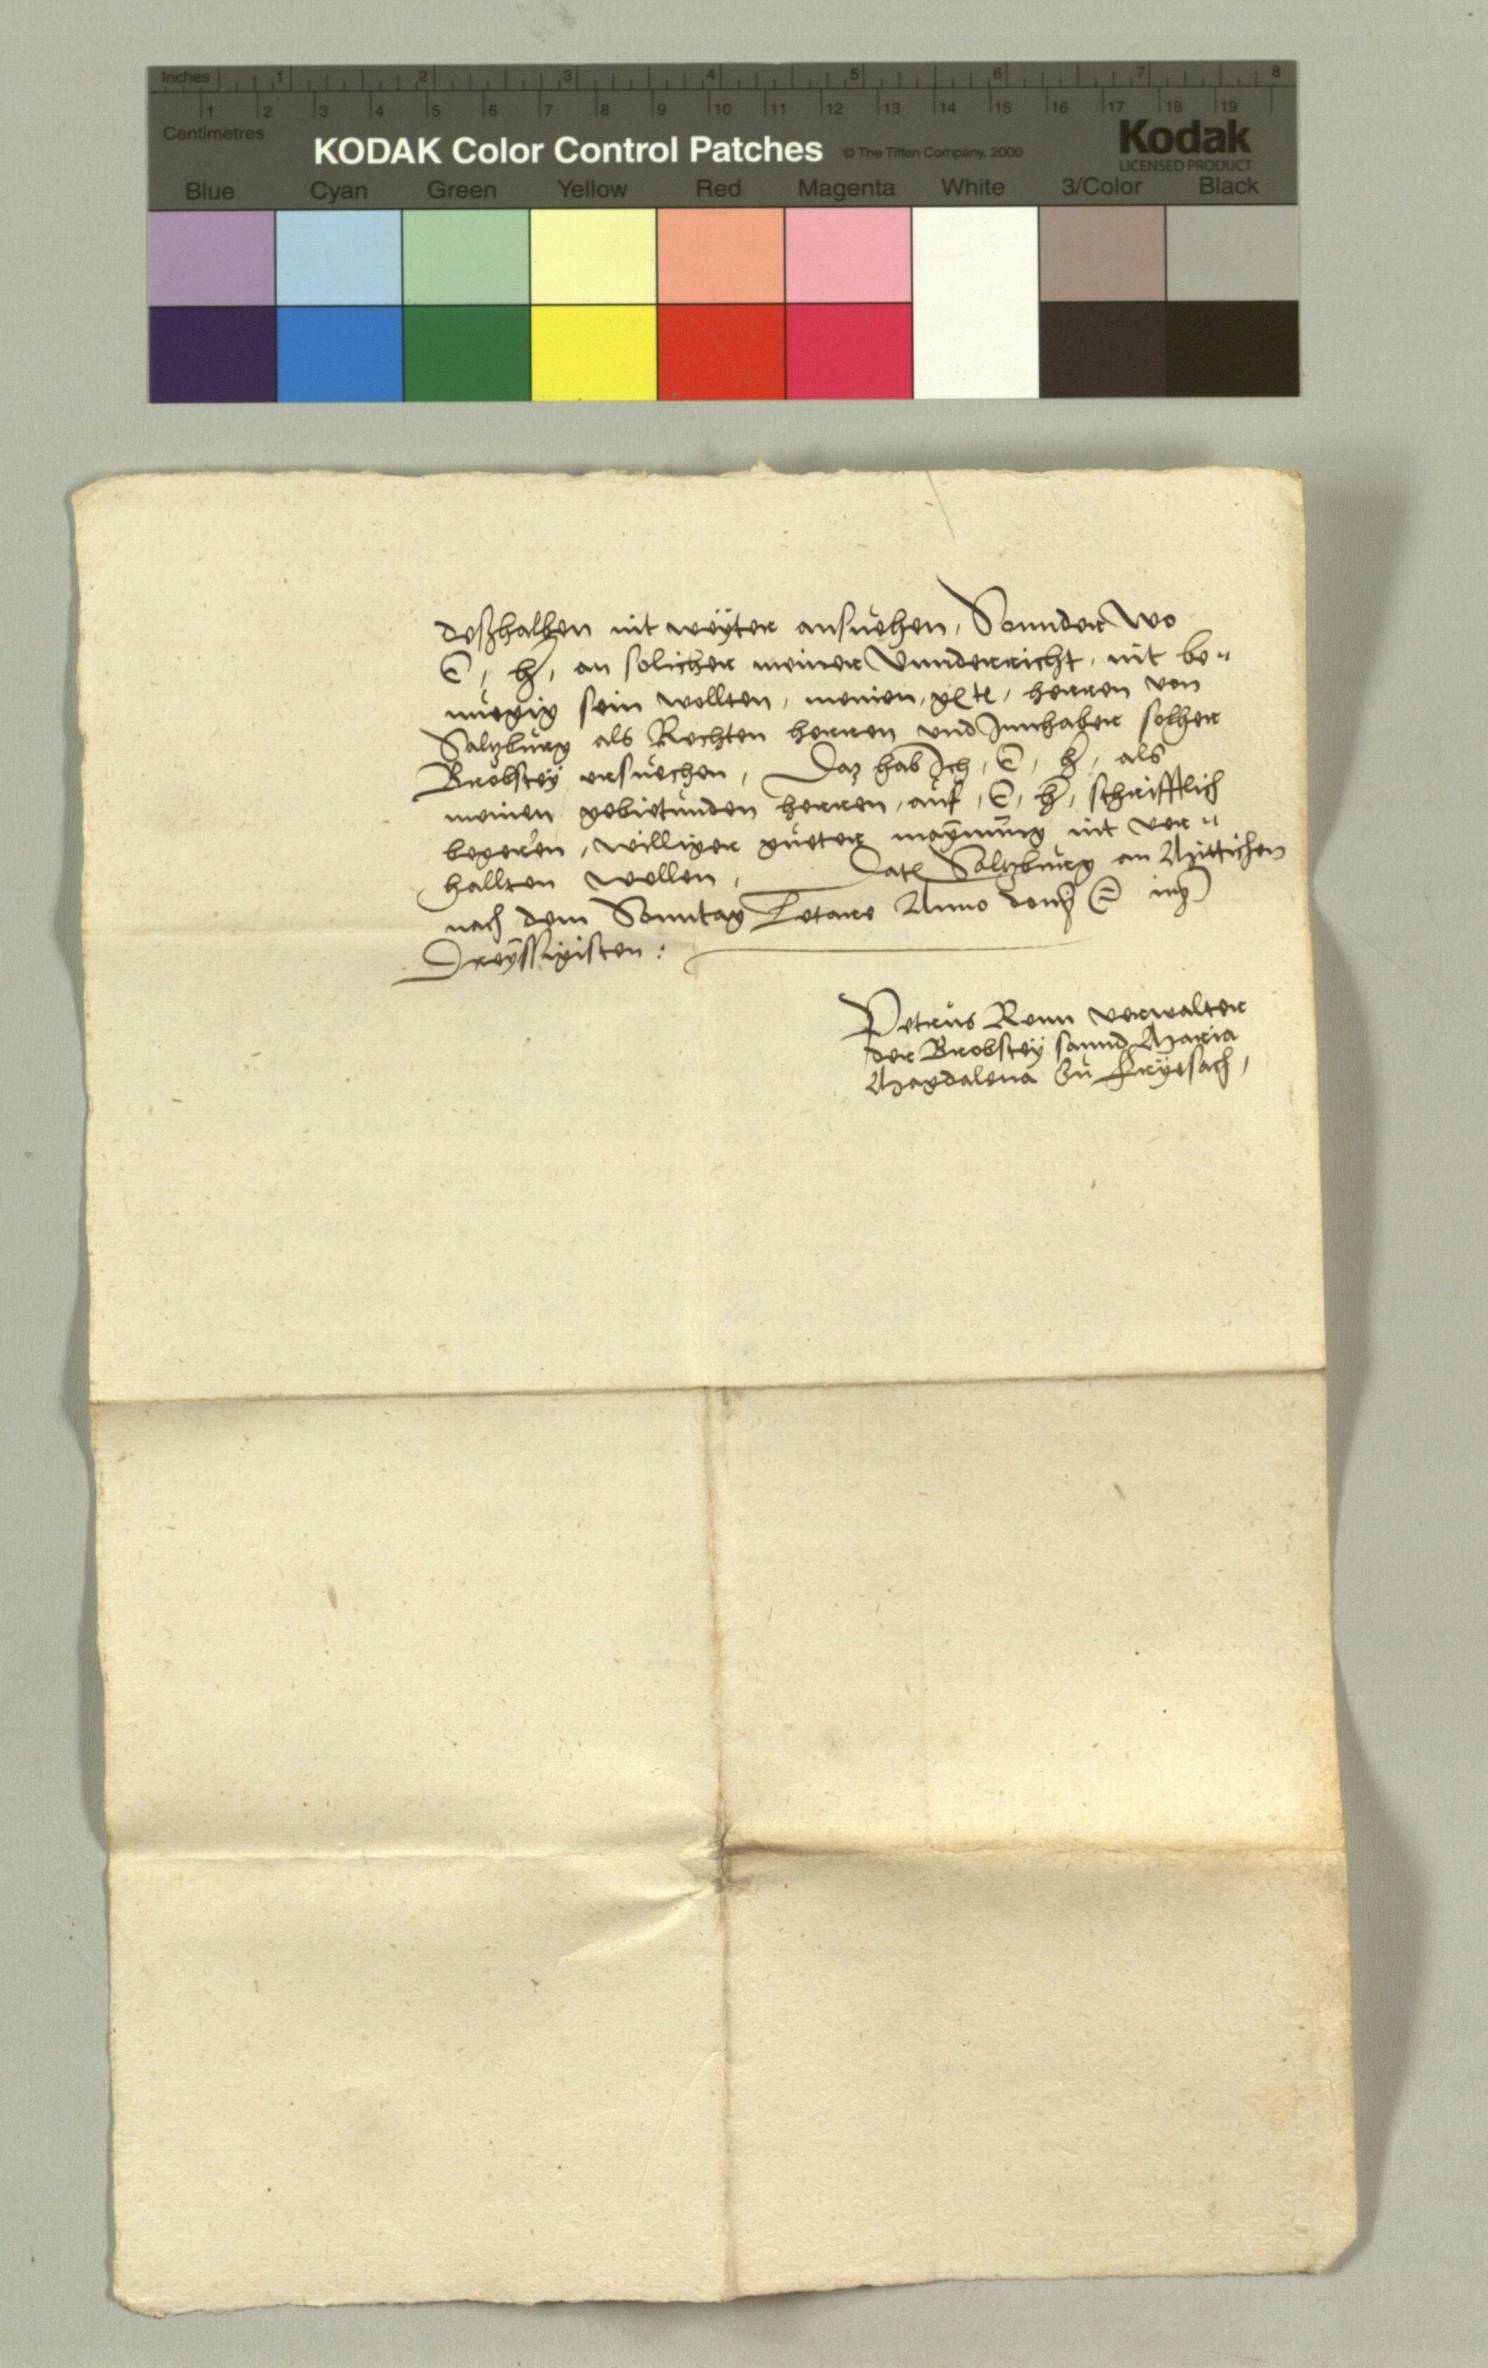 Inches 1 2 3 4 5 6 7 8
1 2 3 4 5 6 7 8 9 10 11 12 13 14 15 16 17 18 19
Centimetres
KODAK Color Control Patches © The Tiffen Company, 2000 Kodak
LICENSED PRODUCT
Blue Cyan Green Yellow Red Magenta White 3/Color Black
deßhalben nit weÿter ansuehen, Sonnder wo
E, h, an solicher meiner Vnnderricht, nit be„
nuegig sein wollten, meinen, herren von
Saltzburg als Rechten herren vnd Innhaber solher
Brobsteÿ ersuechen, Daz hab Ich, E, h, als
meinen gebietunden herren, auf, E, h, schrifftlich
begeren, williger gueter maÿnung nit ver„
hallten wellen, Dat Saltzburg an Mittichen
nach dem Sonntag Letare Anno im
Dreÿssigisten:
Petrus Renn verwalter
der Brobsteÿ sannd Maria
Magdalena zu Frÿesach,